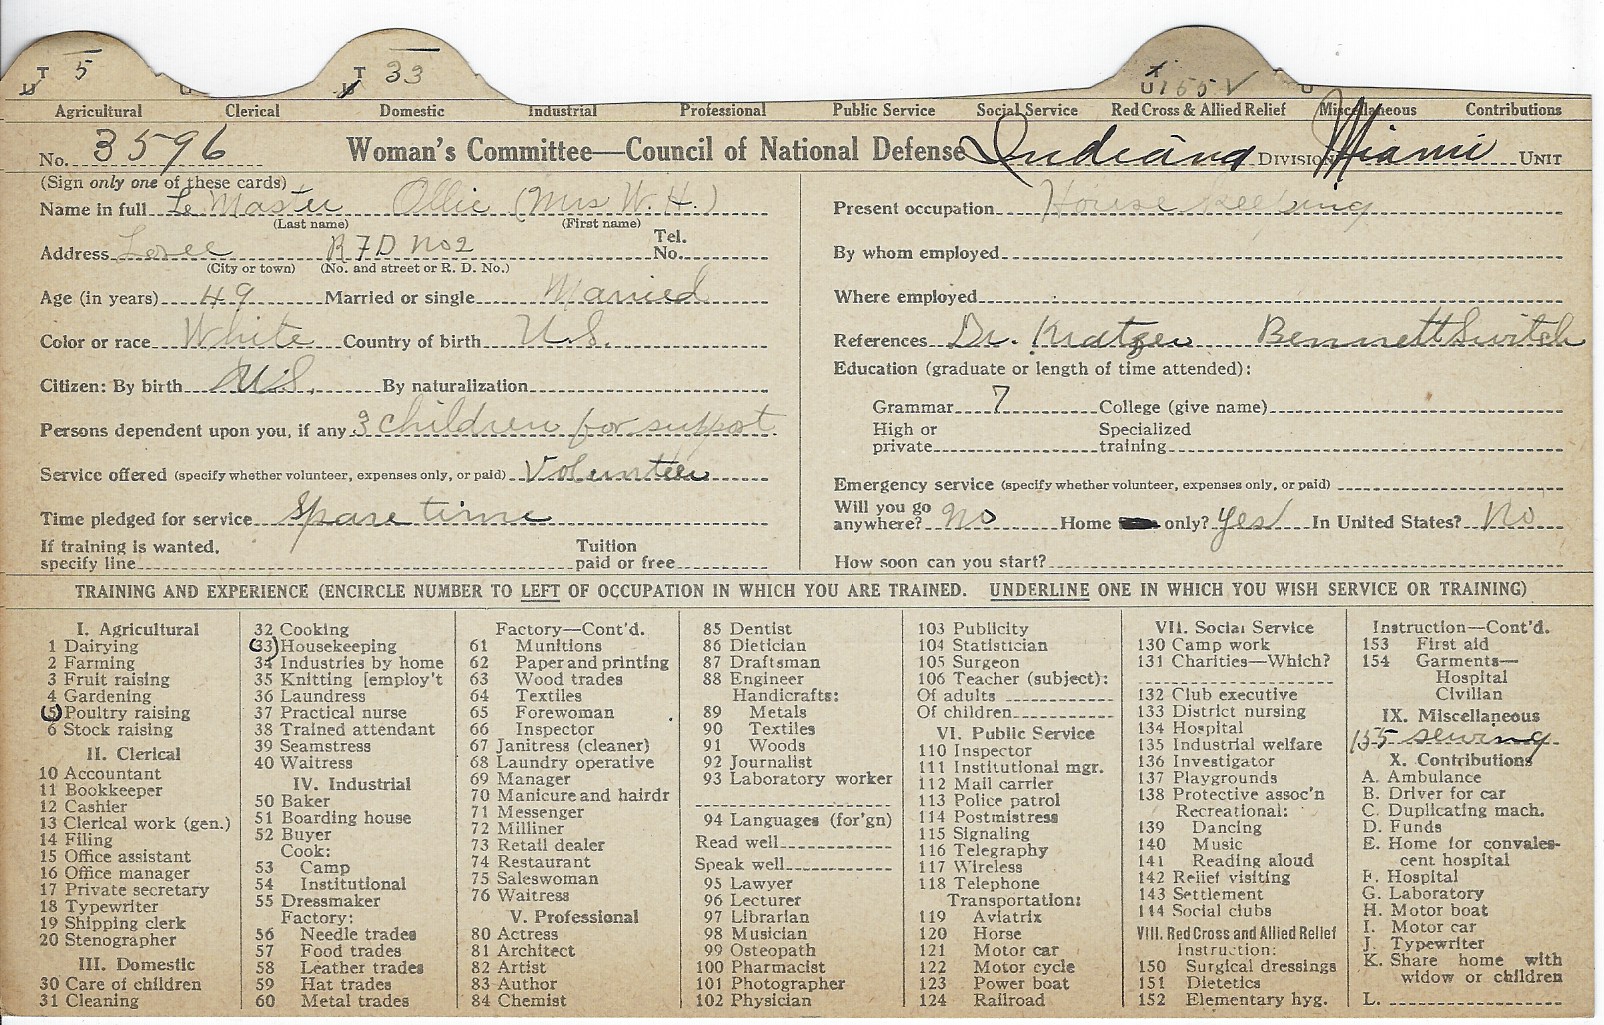 T 5 T 33 155 V
U U U U U
Agricultural Clerical Domestic Industrial Professional Public Service Social Service Red Cross & Allied Relief Miscellaneous Contributions
No. 3596 Woman's Committee—Council of National Defense Indiana DIVISION Miami UNIT
(Sign only one of these cards)
Name in full Le Master Ollie (Mrs W. H.)
(Last name) (First name)
Address Loree R F D No 2 Tel. No.
(City or town) (No. and street or R. D. No.)
Age (in years) 49 Married or single Married
Color or race White Country of birth U.S.
Citizen: By birth U.S. By naturalization
Persons dependent upon you, if any 3 children for support
Service offered (specify whether volunteer, expenses only, or paid) Volunteer
Time pledged for service Spare time
If training is wanted, Tuition
specify line paid or free
Present occupation House keeping
By whom employed
Where employed
References Dr. Kratzer Bennett Switch
Education (graduate or length of time attended):
Grammar 7 College (give name)
High or Specialized
private training
Emergency service (specify whether volunteer, expenses only, or paid)
Will you go
anywhere? No Home only? Yes In United States? No
How soon can you start?
TRAINING AND EXPERIENCE (ENCIRCLE NUMBER TO LEFT OF OCCUPATION IN WHICH YOU ARE TRAINED. UNDERLINE ONE IN WHICH YOU WISH SERVICE OR TRAINING)
I. Agricultural
1 Dairying
2 Farming
3 Fruit raising
4 Gardening
5 Poultry raising
6 Stock raising
II. Clerical
10 Accountant
11 Bookkeeper
12 Cashier
13 Clerical work (gen.)
14 Filing
15 Office assistant
16 Office manager
17 Private secretary
18 Typewriter
19 Shipping clerk
20 Stenographer
III. Domestic
30 Care of children
31 Cleaning
32 Cooking
33 Housekeeping
34 Industries by home
35 Knitting [employ't
36 Laundress
37 Practical nurse
38 Trained attendant
39 Seamstress
40 Waitress
IV. Industrial
50 Baker
51 Boarding house
52 Buyer
Cook:
53 Camp
54 Institutional
55 Dressmaker
Factory:
56 Needle trades
57 Food trades
58 Leather trades
59 Hat trades
60 Metal trades
Factory—Cont'd.
61 Munitions
62 Paper and printing
63 Wood trades
64 Textiles
65 Forewoman
66 Inspector
67 Janitress (cleaner)
68 Laundry operative
69 Manager
70 Manicure and hairdr
71 Messenger
72 Milliner
73 Retail dealer
74 Restaurant
75 Saleswoman
76 Waitress
V. Professional
80 Actress
81 Architect
82 Artist
83 Author
84 Chemist
85 Dentist
86 Dietician
87 Draftsman
88 Engineer
Handicrafts:
89 Metals
90 Textiles
91 Woods
92 Journalist
93 Laboratory worker
94 Languages (for'gn)
Read well
Speak well
95 Lawyer
96 Lecturer
97 Librarian
98 Musician
99 Osteopath
100 Pharmacist
101 Photographer
102 Physician
103 Publicity
104 Statistician
105 Surgeon
106 Teacher (subject):
Of adults
Of children
VI. Public Service
110 Inspector
111 Institutional mgr.
112 Mail carrier
113 Police patrol
114 Postmistress
115 Signaling
116 Telegraphy
117 Wireless
118 Telephone
Transportation:
119 Aviatrix
120 Horse
121 Motor car
122 Motor cycle
123 Power boat
124 Railroad
VII. Social Service
130 Camp work
131 Charities—Which?
132 Club executive
133 District nursing
134 Hospital
135 Industrial welfare
136 Investigator
137 Playgrounds
138 Protective assoc'n
Recreational:
139 Dancing
140 Music
141 Reading aloud
142 Relief visiting
143 Settlement
144 Social clubs
VIII. Red Cross and Allied Relief
Instruction:
150 Surgical dressings
151 Dietetics
152 Elementary hyg.
Instruction—Cont'd.
153 First aid
154 Garments—
Hospital
Civilian
IX. Miscellaneous
155 sewing
X. Contributions
A. Ambulance
B. Driver for car
C. Duplicating mach.
D. Funds
E. Home for convales-
cent hospital
F. Hospital
G. Laboratory
H. Motor boat
I. Motor car
J. Typewriter
K. Share home with
widow or children
L.